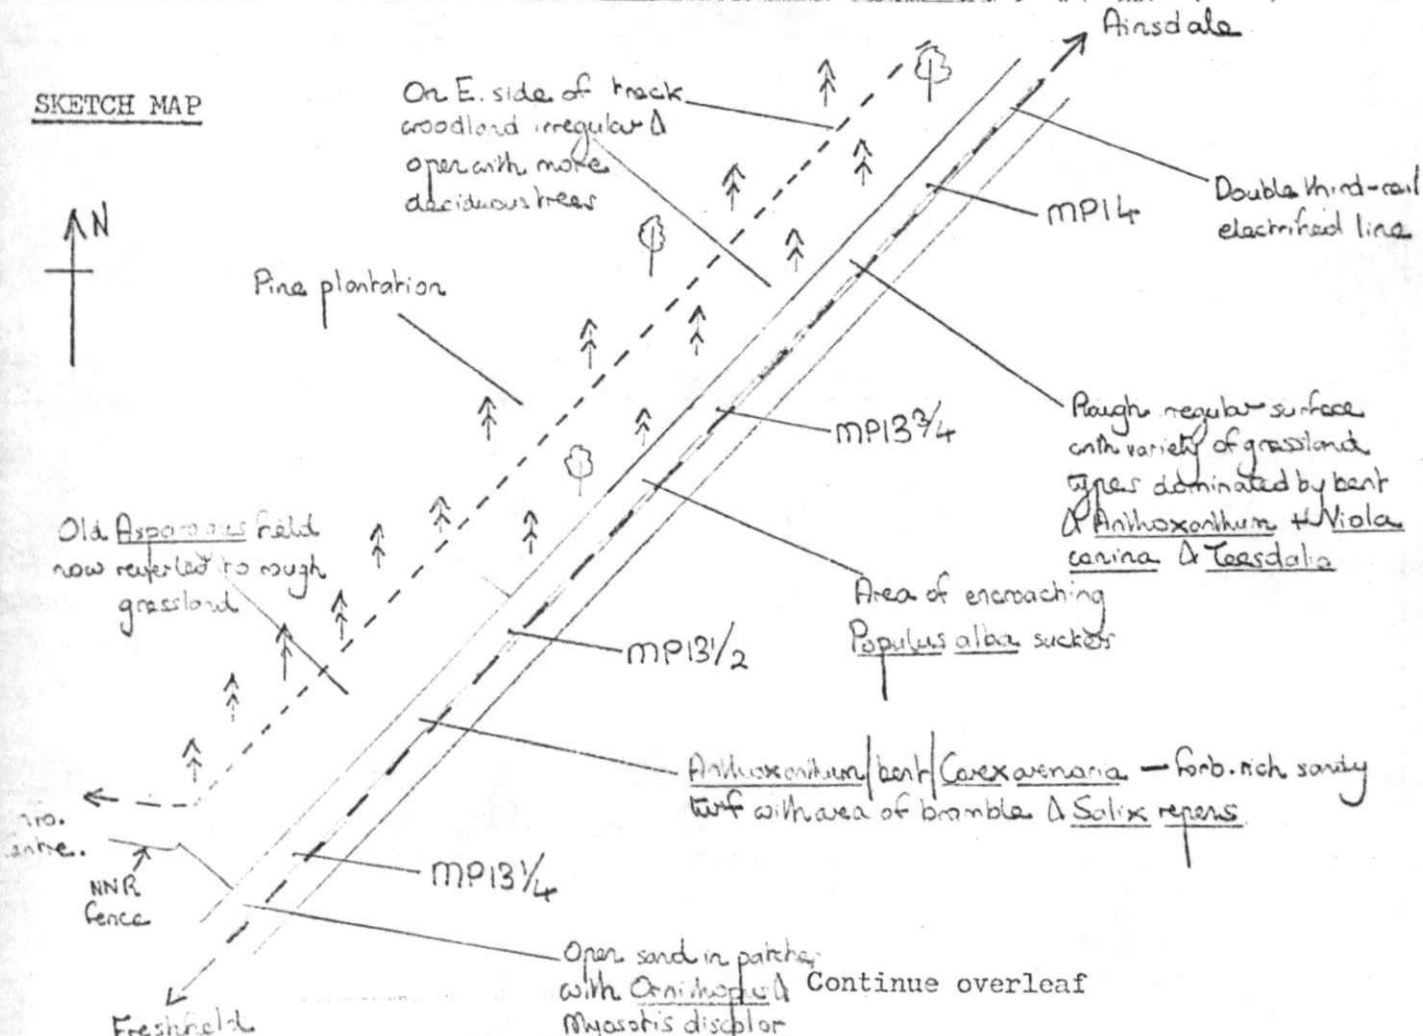 Ainsdale
SKETCH MAP
On E. side of track
woodland irregular &
open with more
deciduous trees
N
Double third-rail
electrified line
MP14
Pine plantation
Rough regular surface
with variety of grassland
types dominated by bent
& Anthoxanthum + Viola
canina & Teesdalia
MP13 3/4
Old Asparagus field
now reverted to rough
grassland
Area of encroaching
Populus alba suckers
MP13 1/2
Anthoxanthum/bent/Carex arenaria — forb-rich sandy
turf with area of bramble & Salix repens
MP13 1/4
NNR
fence
Open sand in patches
with Ornithopus &
Myosotis discolor
Continue overleaf
Freshfield